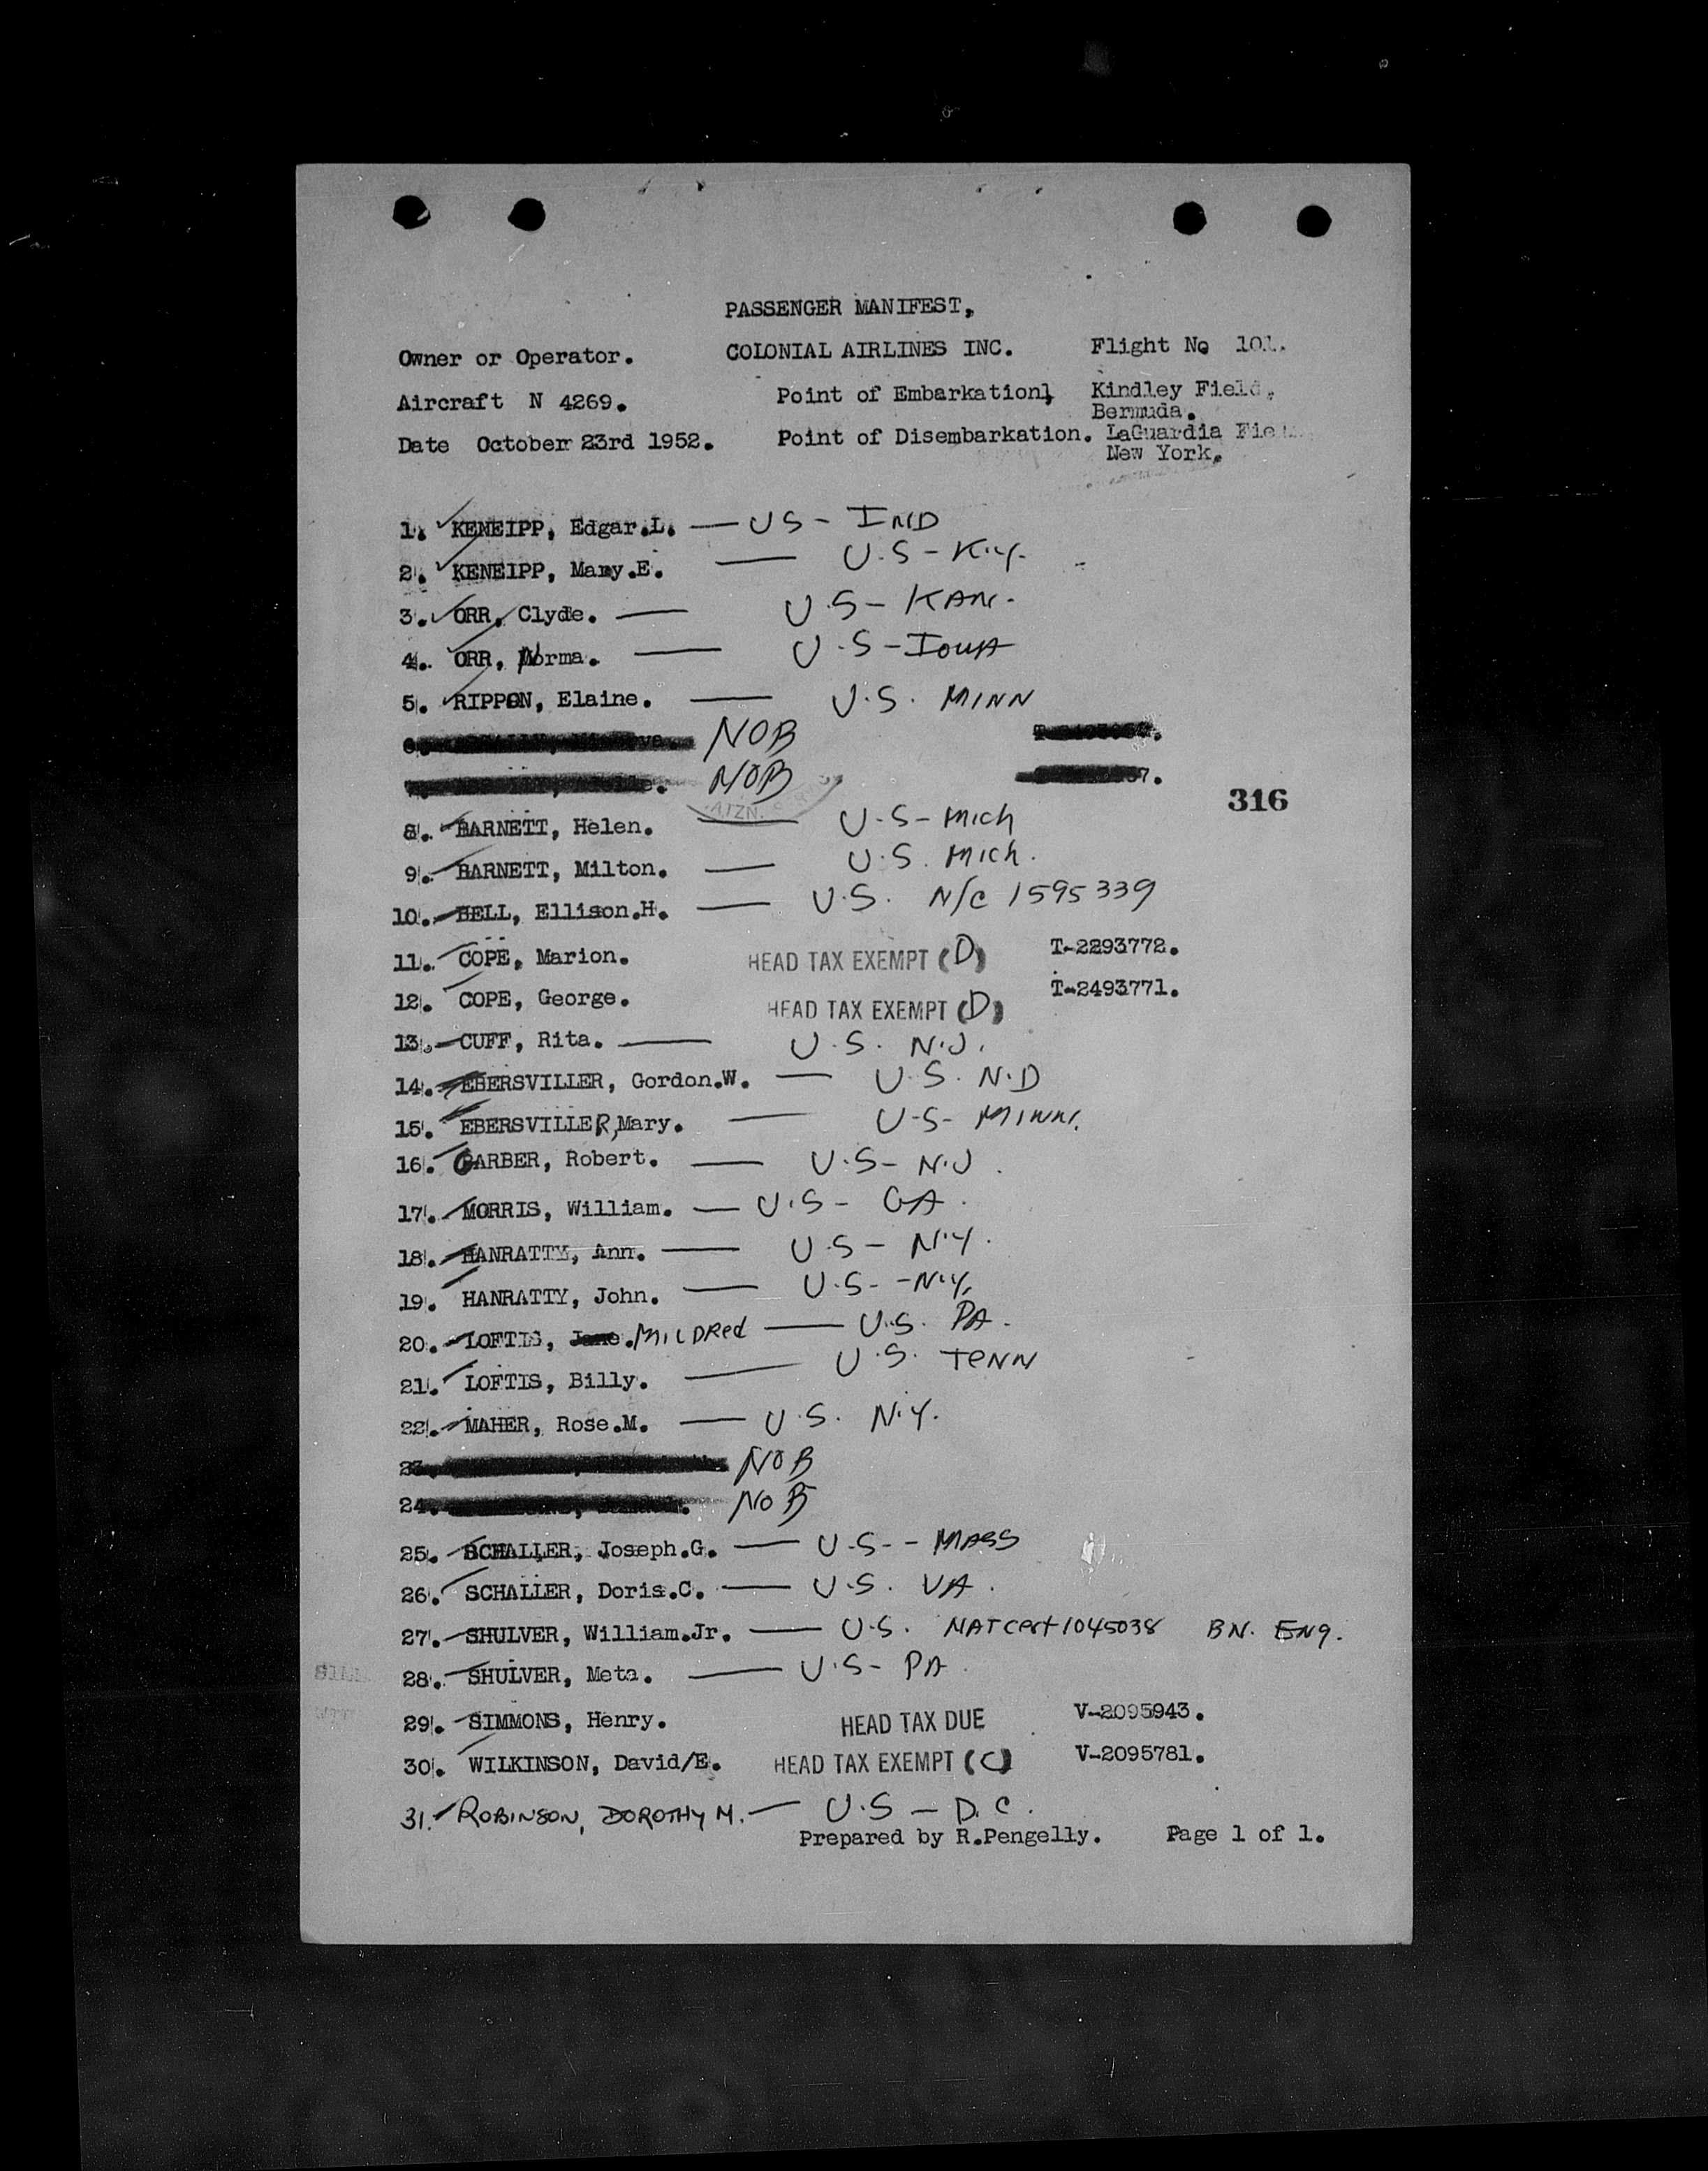 PASSENGER MANIFEST,
Owner or Operator. COLONIAL AIRLINES INC. Flight No 101.
Aircraft N 4269. Point of Embarkation, Kindley Field,
Bermuda.
Date October 23rd 1952. Point of Disembarkation. LaGuardia Field
New York.
1. KENEIPP, Edgar.L. — US - IND
2. KENEIPP, Mary.E. — U.S - K.y.
3. ORR, Clyde. — U.S - KAN.
4. ORR, Norma. — U.S - IowA
5. RIPPON, Elaine. — U.S. MINN
NOB
NOB
316
8. BARNETT, Helen. — U.S - Mich
9. BARNETT, Milton. — U.S. Mich.
10. BELL, Ellison.H. — U.S. N/C 1595339
11. COPE, Marion. HEAD TAX EXEMPT (D) T-2293772.
12. COPE, George. HEAD TAX EXEMPT (D) T-2493771.
13. CUFF, Rita. — U.S. N.J.
14. EBERSVILLER, Gordon.W. — U.S. N.D
15. EBERSVILLER, Mary. — U-S- MINN.
16. GARBER, Robert. — U.S - N.J.
17. MORRIS, William. — U.S - GA.
18. HANRATTY, Ann. — U.S - N.Y.
19. HANRATTY, John. — U.S. - N.Y.
20. LOFTIS, Jane. MILDRed — U.S. PA.
21. LOFTIS, Billy. — U.S. TeNN
22. MAHER, Rose.M. — U.S. N.Y.
23. NOB
24. NOB
25. SCHALLER, Joseph.G. — U-S - - MASS
26. SCHALLER, Doris.C. — U.S. VA.
27. SHULVER, William.Jr. — U.S. NATCert 1045038 BN. ENg.
28. SHULVER, Meta. — U.S - PA
29. SIMMONS, Henry. HEAD TAX DUE V-2095943.
30. WILKINSON, David/E. HEAD TAX EXEMPT (C) V-2095781.
31. ROBINSON, DOROTHY M. — U.S — D.C.
Prepared by R.Pengelly. Page 1 of 1.